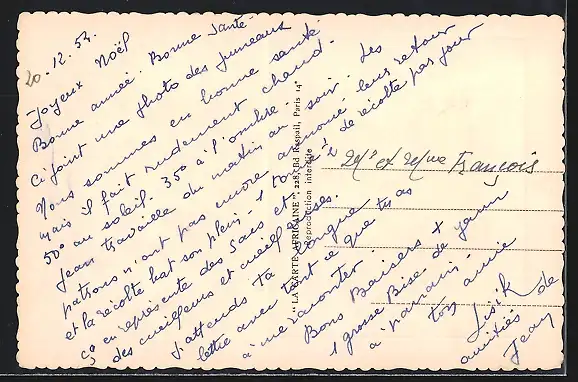 20.12.53.
Joyeux Noël
Bonne année. Bonne Santé
Ci joint une photo des jumeaux
Nous sommes en bonne santé
mais il fait rudement chaud.
50° au soleil. 35° à l'ombre.
Jean travaille du matin au soir. Les
patrons n'ont pas encore annoncé leur retour
et la récolte bat son plein. 1 tonne de récolte par jour
ça en représente des sacs et
des cueilleurs et cueilleuses.
J'attends ta longue
lettre avec tout ce que tu as
à me raconter.
Bons Baisers X
1 grosse Bise de
à parrain.
ton amie
Lisik
amitiés de
Jean
Mr et Mme François
"LA CARTE AFRICAINE" 228, Bd Raspail, Paris 14e
Reproduction interdite